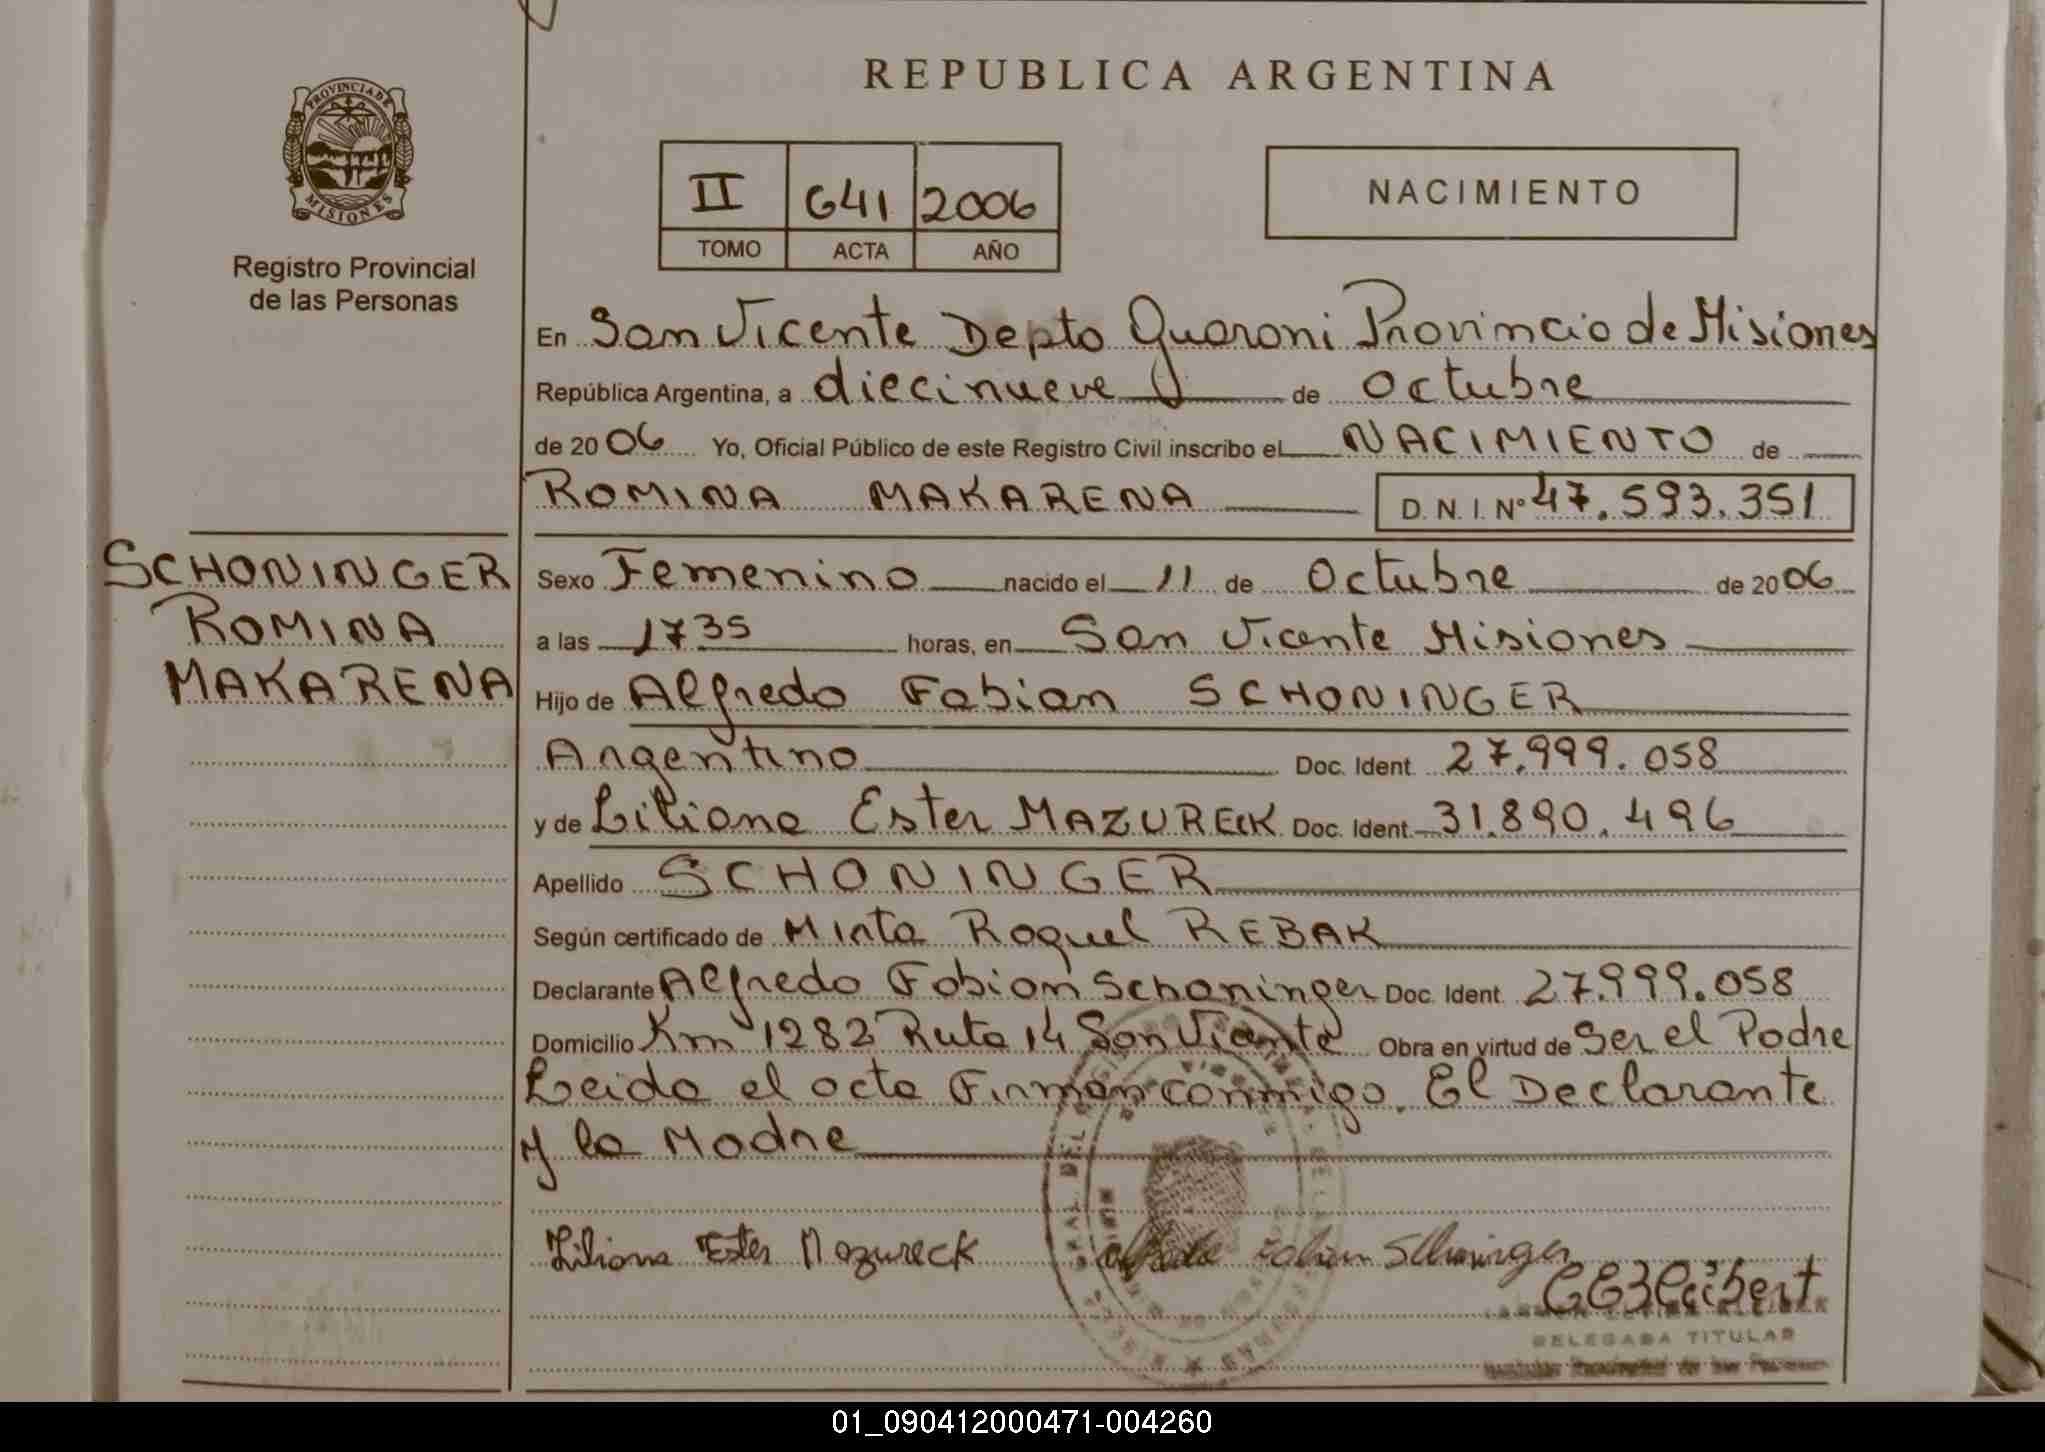 REPUBLICA ARGENTINA
PROVINCIA DE
MISIONES
Registro Provincial
de las Personas
II 641 2006
TOMO ACTA AÑO
NACIMIENTO
En San Vicente Depto Guarani Provincia de Misiones
República Argentina, a diecinueve de Octubre
de 2006 Yo, Oficial Público de este Registro Civil inscribo el NACIMIENTO de
ROMINA MAKARENA D.N.I. Nº 47.593.351
SCHONINGER
ROMINA
MAKARENA
Sexo Femenino nacido el 11 de Octubre de 2006
a las 17 35 horas, en San Vicente Misiones
Hijo de Alfredo Fabian SCHONINGER
Argentino Doc. Ident. 27.999.058
y de Liliana Ester MAZURECK Doc. Ident. 31.890.496
Apellido SCHONINGER
Según certificado de Mirta Raquel REBAK
Declarante Alfredo Fabian Schoninger Doc. Ident. 27.999.058
Domicilio Km 1282 Ruta 14 San Vicente Obra en virtud de Ser el Padre
Leida el acta Firman conmigo. El Declarante
y la Madre
Liliana Ester Mazureck
Fabian Schoninger
DELEGADA TITULAR
01_090412000471-004260